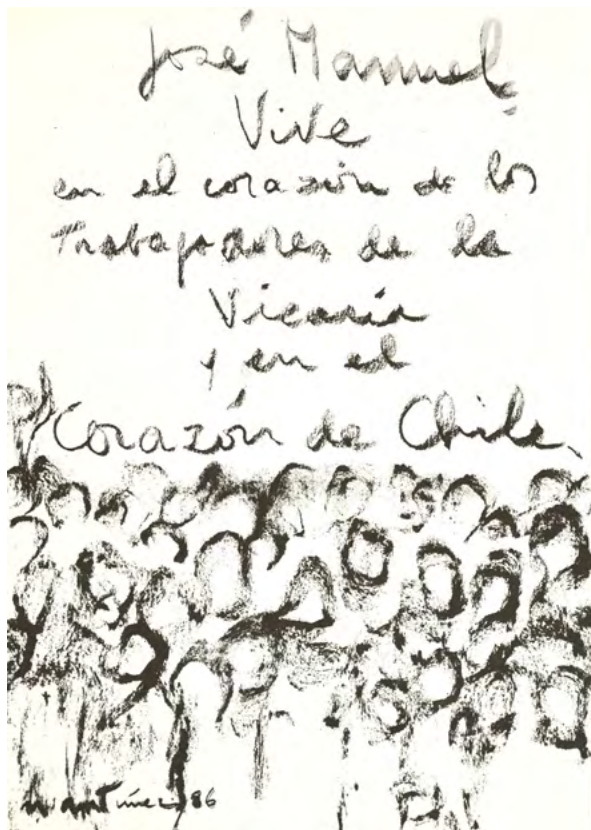 José Manuel
Vive
en el corazón de los
Trabajadores de la
Vicaría
y en el
Corazón de Chile.
86